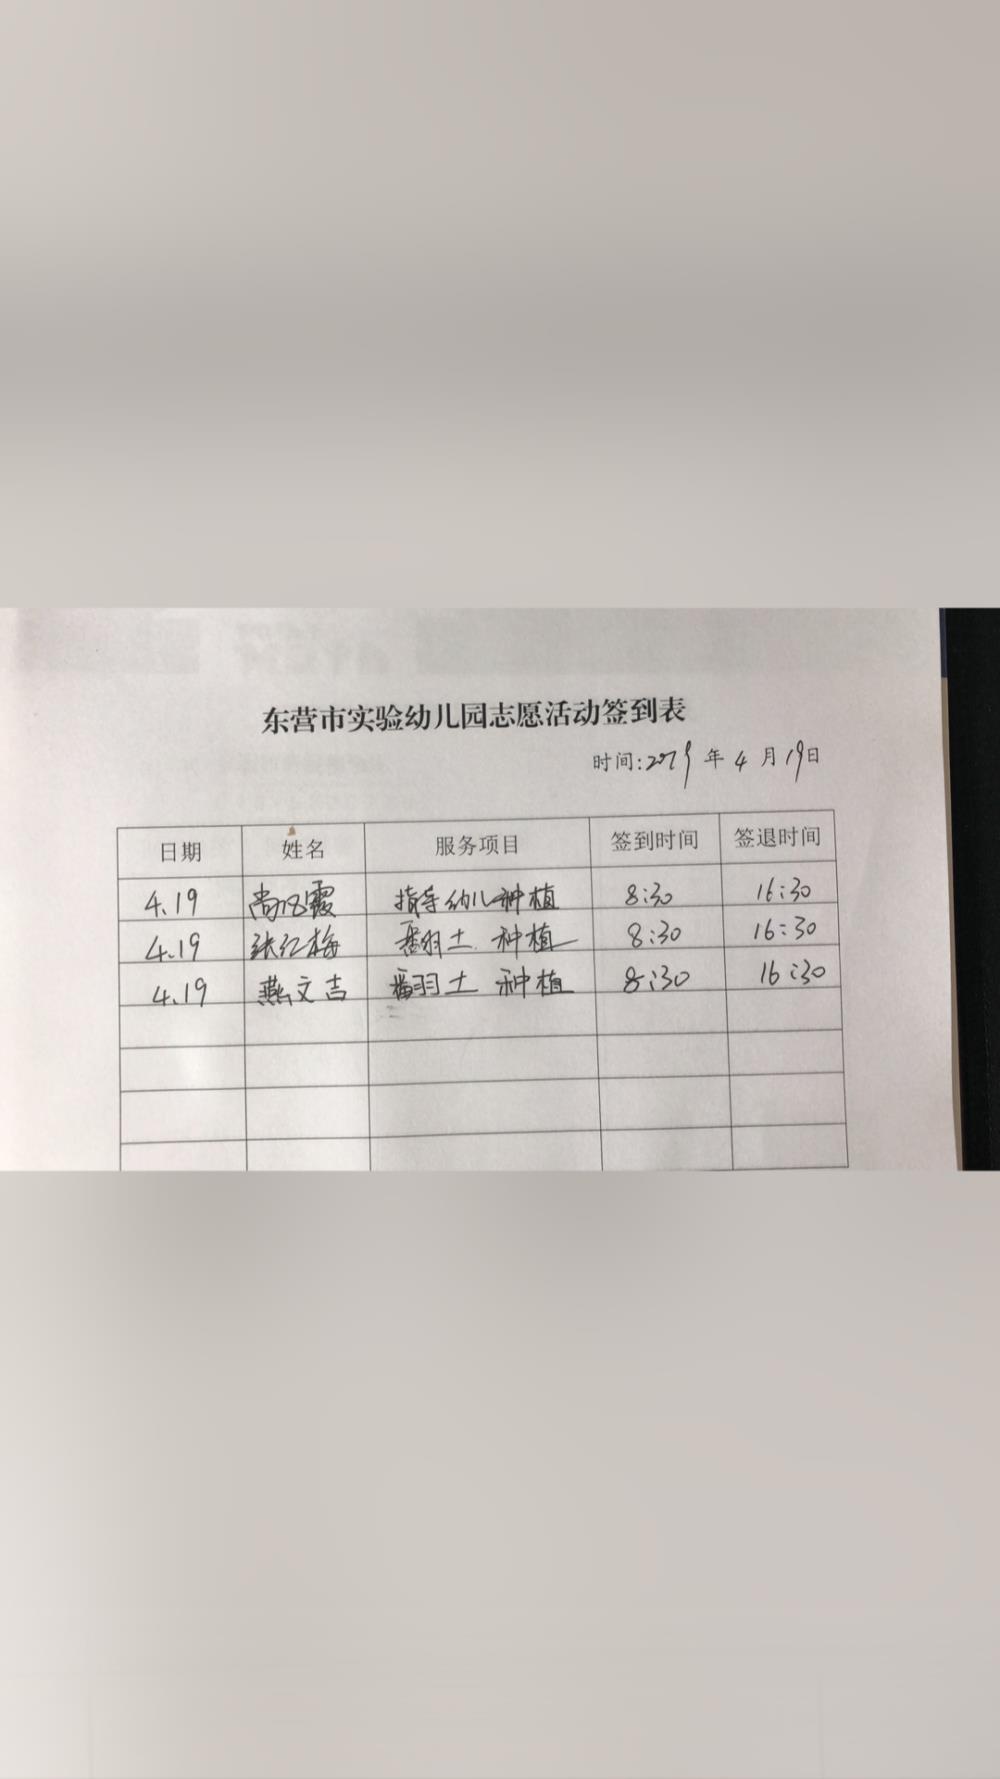 东营市实验幼儿园志愿活动签到表
时间: 年 4 月 19 日
日期 姓名 服务项目 签到时间 签退时间
4.19 尚 霞 指导幼儿种植 8:30 16:30
4.19 张红梅 翻土 种植 8:30 16:30
4.19 燕文吉 翻土 种植 8:30 16:30